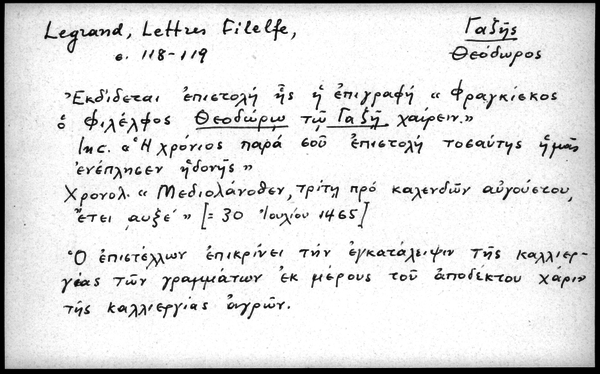 Legrand, Lettres Filelfe,
Γαζῆς
σ. 118-119
Θεόδωρος
Ἐκδίδεται ἐπιστολή ἧς ἡ ἐπιγραφή « Φραγκίσκος
ὁ Φιλέλφος Θεοδώρῳ τῷ Γαζῇ χαίρειν.»
Inc. « Ἡ χρόνιος παρά σοῦ ἐπιστολή τοσαύτης ἡμᾶς
ἐνέπλησεν ἡδονῆς »
Χρονολ. « Μεδιολάνοθεν, τρίτῃ πρό καλενδῶν αὐγούστου,
ἔτει ͵αυξε´ » [= 30 Ἰουλίου 1465]
Ὁ ἐπιστέλλων ἐπικρίνει τήν ἐγκατάλειψιν τῆς καλλιερ-
γέας τῶν γραμμάτων ἐκ μέρους τοῦ ἀποδέκτου χάριν
τῆς καλλιεργίας ἀγρῶν.